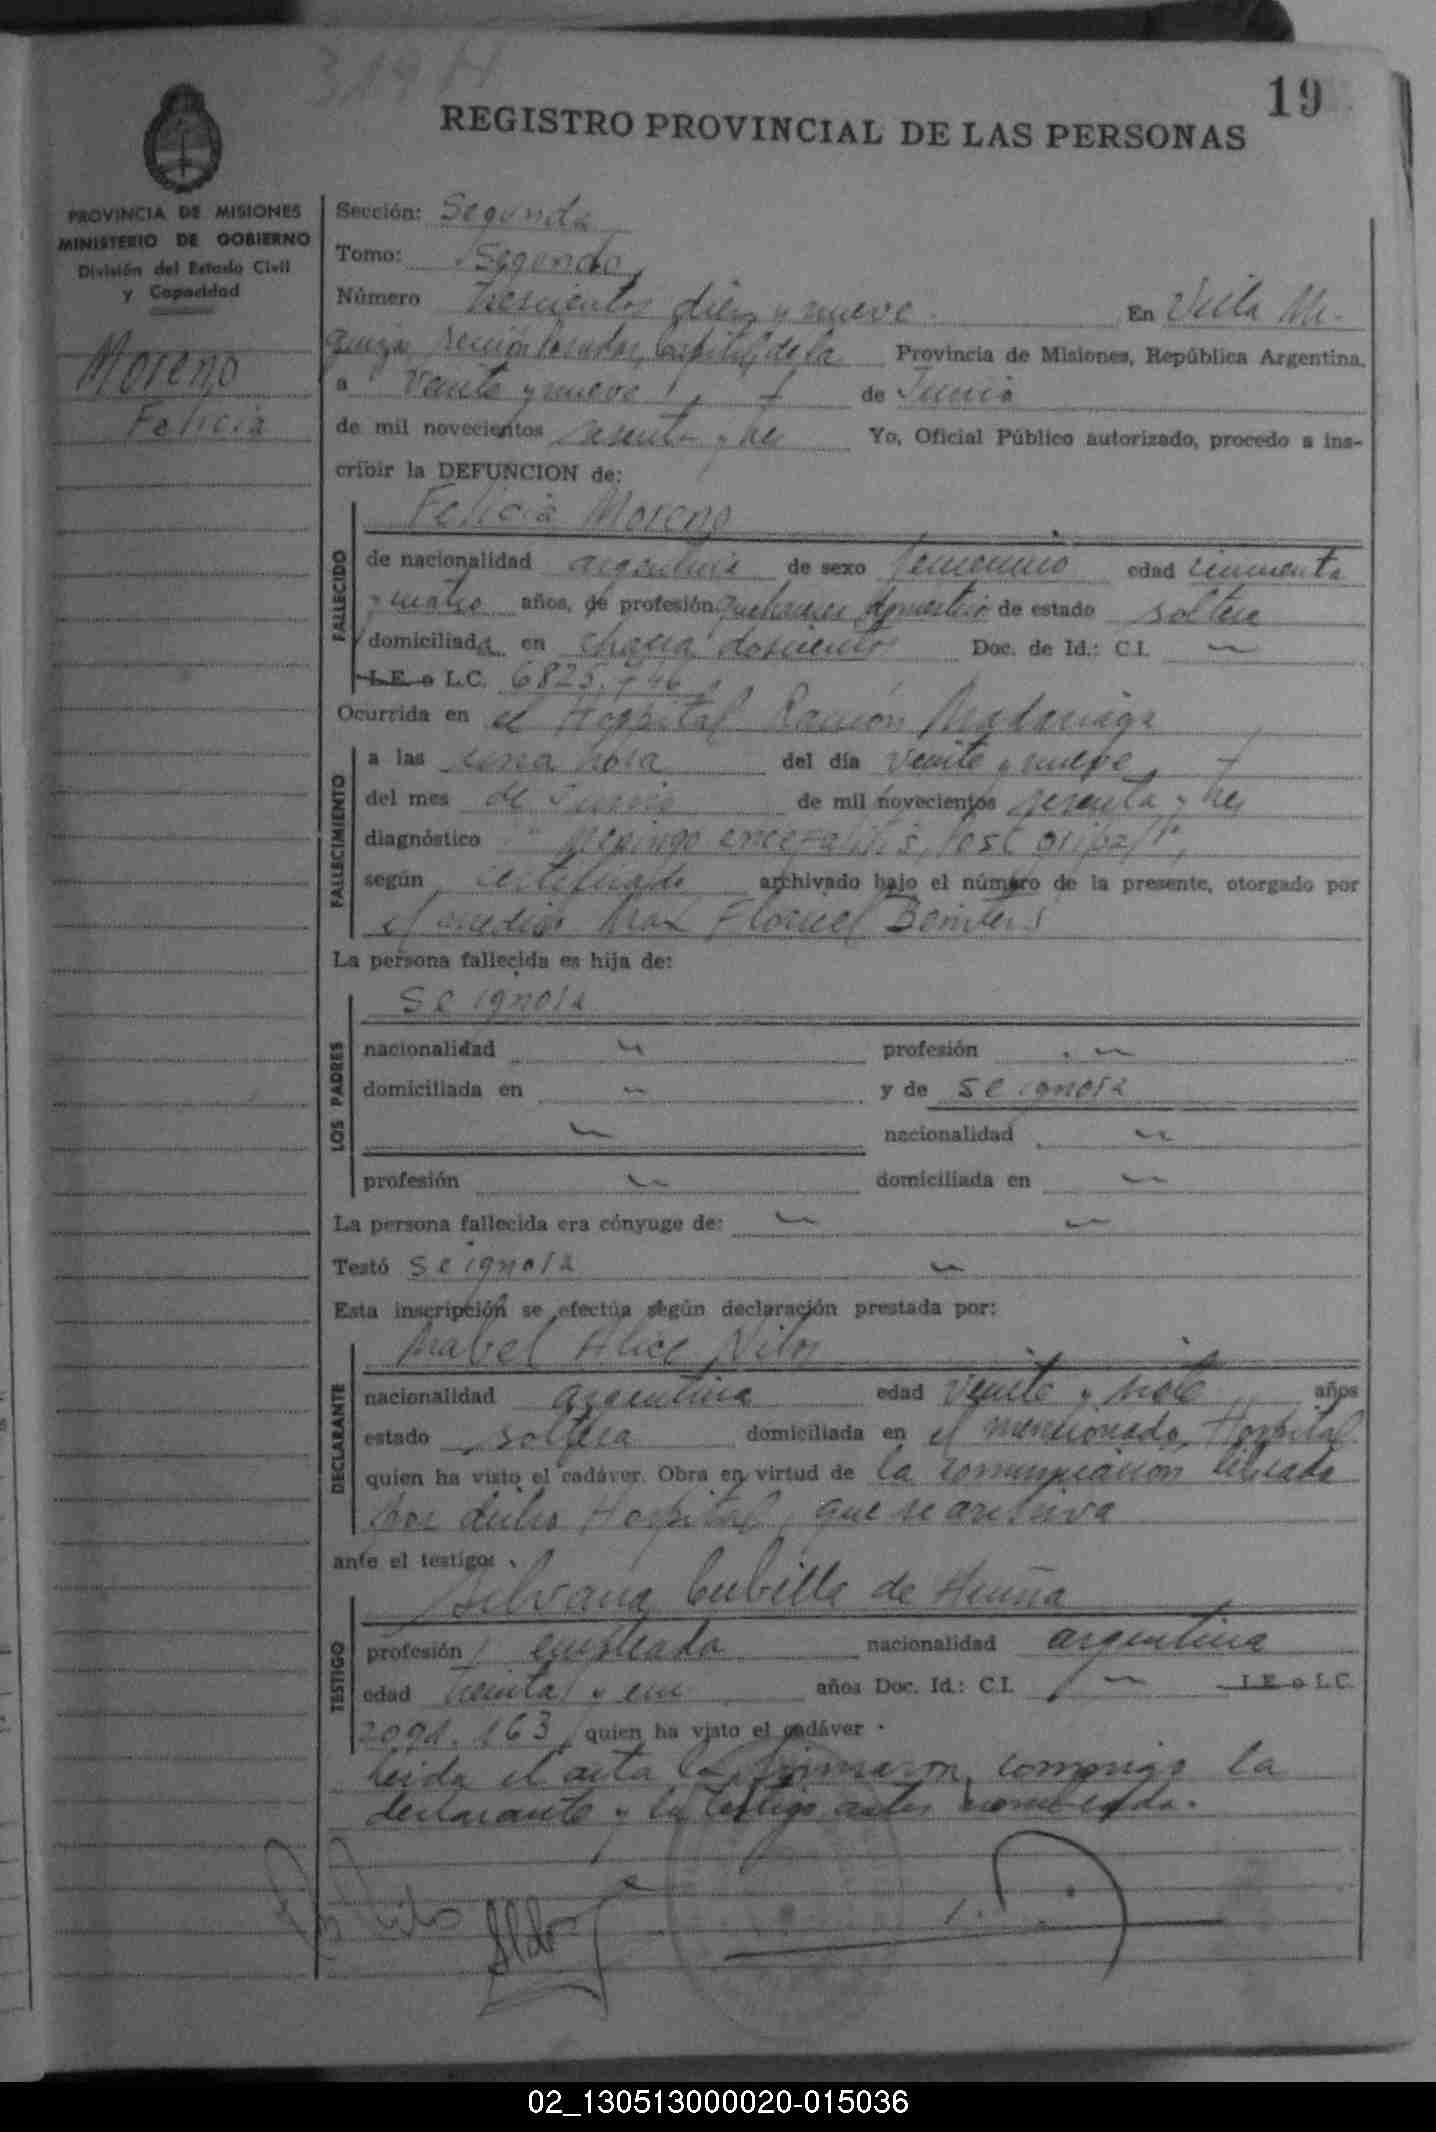 319 H
19
REGISTRO PROVINCIAL DE LAS PERSONAS
PROVINCIA DE MISIONES
MINISTERIO DE GOBIERNO
División del Estado Civil
y Capacidad
Moreno
Felicia
Sección: Segunda
Tomo: Segundo
Número Trescientos diez y nueve En Villa
Provincia de Misiones, República Argentina,
a Veinte y nueve de Junio
de mil novecientos sesenta y tres Yo, Oficial Público autorizado, procedo a ins-
cribir la DEFUNCION de:
FALLECIDO
Felicia Moreno
de nacionalidad argentina de sexo femenino edad cincuenta
y cuatro años, de profesión quehaceres domésticos de estado soltera
domiciliada en chacra doscientos Doc. de Id.: C.I.
L.E. o L.C. 6825.
Ocurrida en el Hospital Ramón Madariaga
FALLECIMIENTO
a las una hora del día veinte y nueve
del mes de Junio de mil novecientos sesenta y tres
diagnóstico "Meningo encefalitis, Post gripal",
según certificado archivado bajo el número de la presente, otorgado por
el médico
La persona fallecida es hija de:
LOS PADRES
se ignora
nacionalidad profesión
domiciliada en y de se ignora
nacionalidad
profesión domiciliada en
La persona fallecida era cónyuge de:
Testó se ignora
Esta inscripción se efectúa según declaración prestada por:
DECLARANTE
Mabel Alice
nacionalidad argentina edad veinte y siete años
estado soltera domiciliada en el mencionado Hospital
quien ha visto el cadáver. Obra en virtud de la comunicación librada
por dicho Hospital, que se archiva
ante el testigo:
TESTIGO
Silvana Cubilla de Acuña
profesión empleada nacionalidad argentina
edad treinta y un años Doc. Id.: C.I. L.E. o L.C.
163 quien ha visto el cadáver.
Leida el acta la firmaron, conmigo la
declarante y la testigo antes nombrada.
02_130513000020-015036